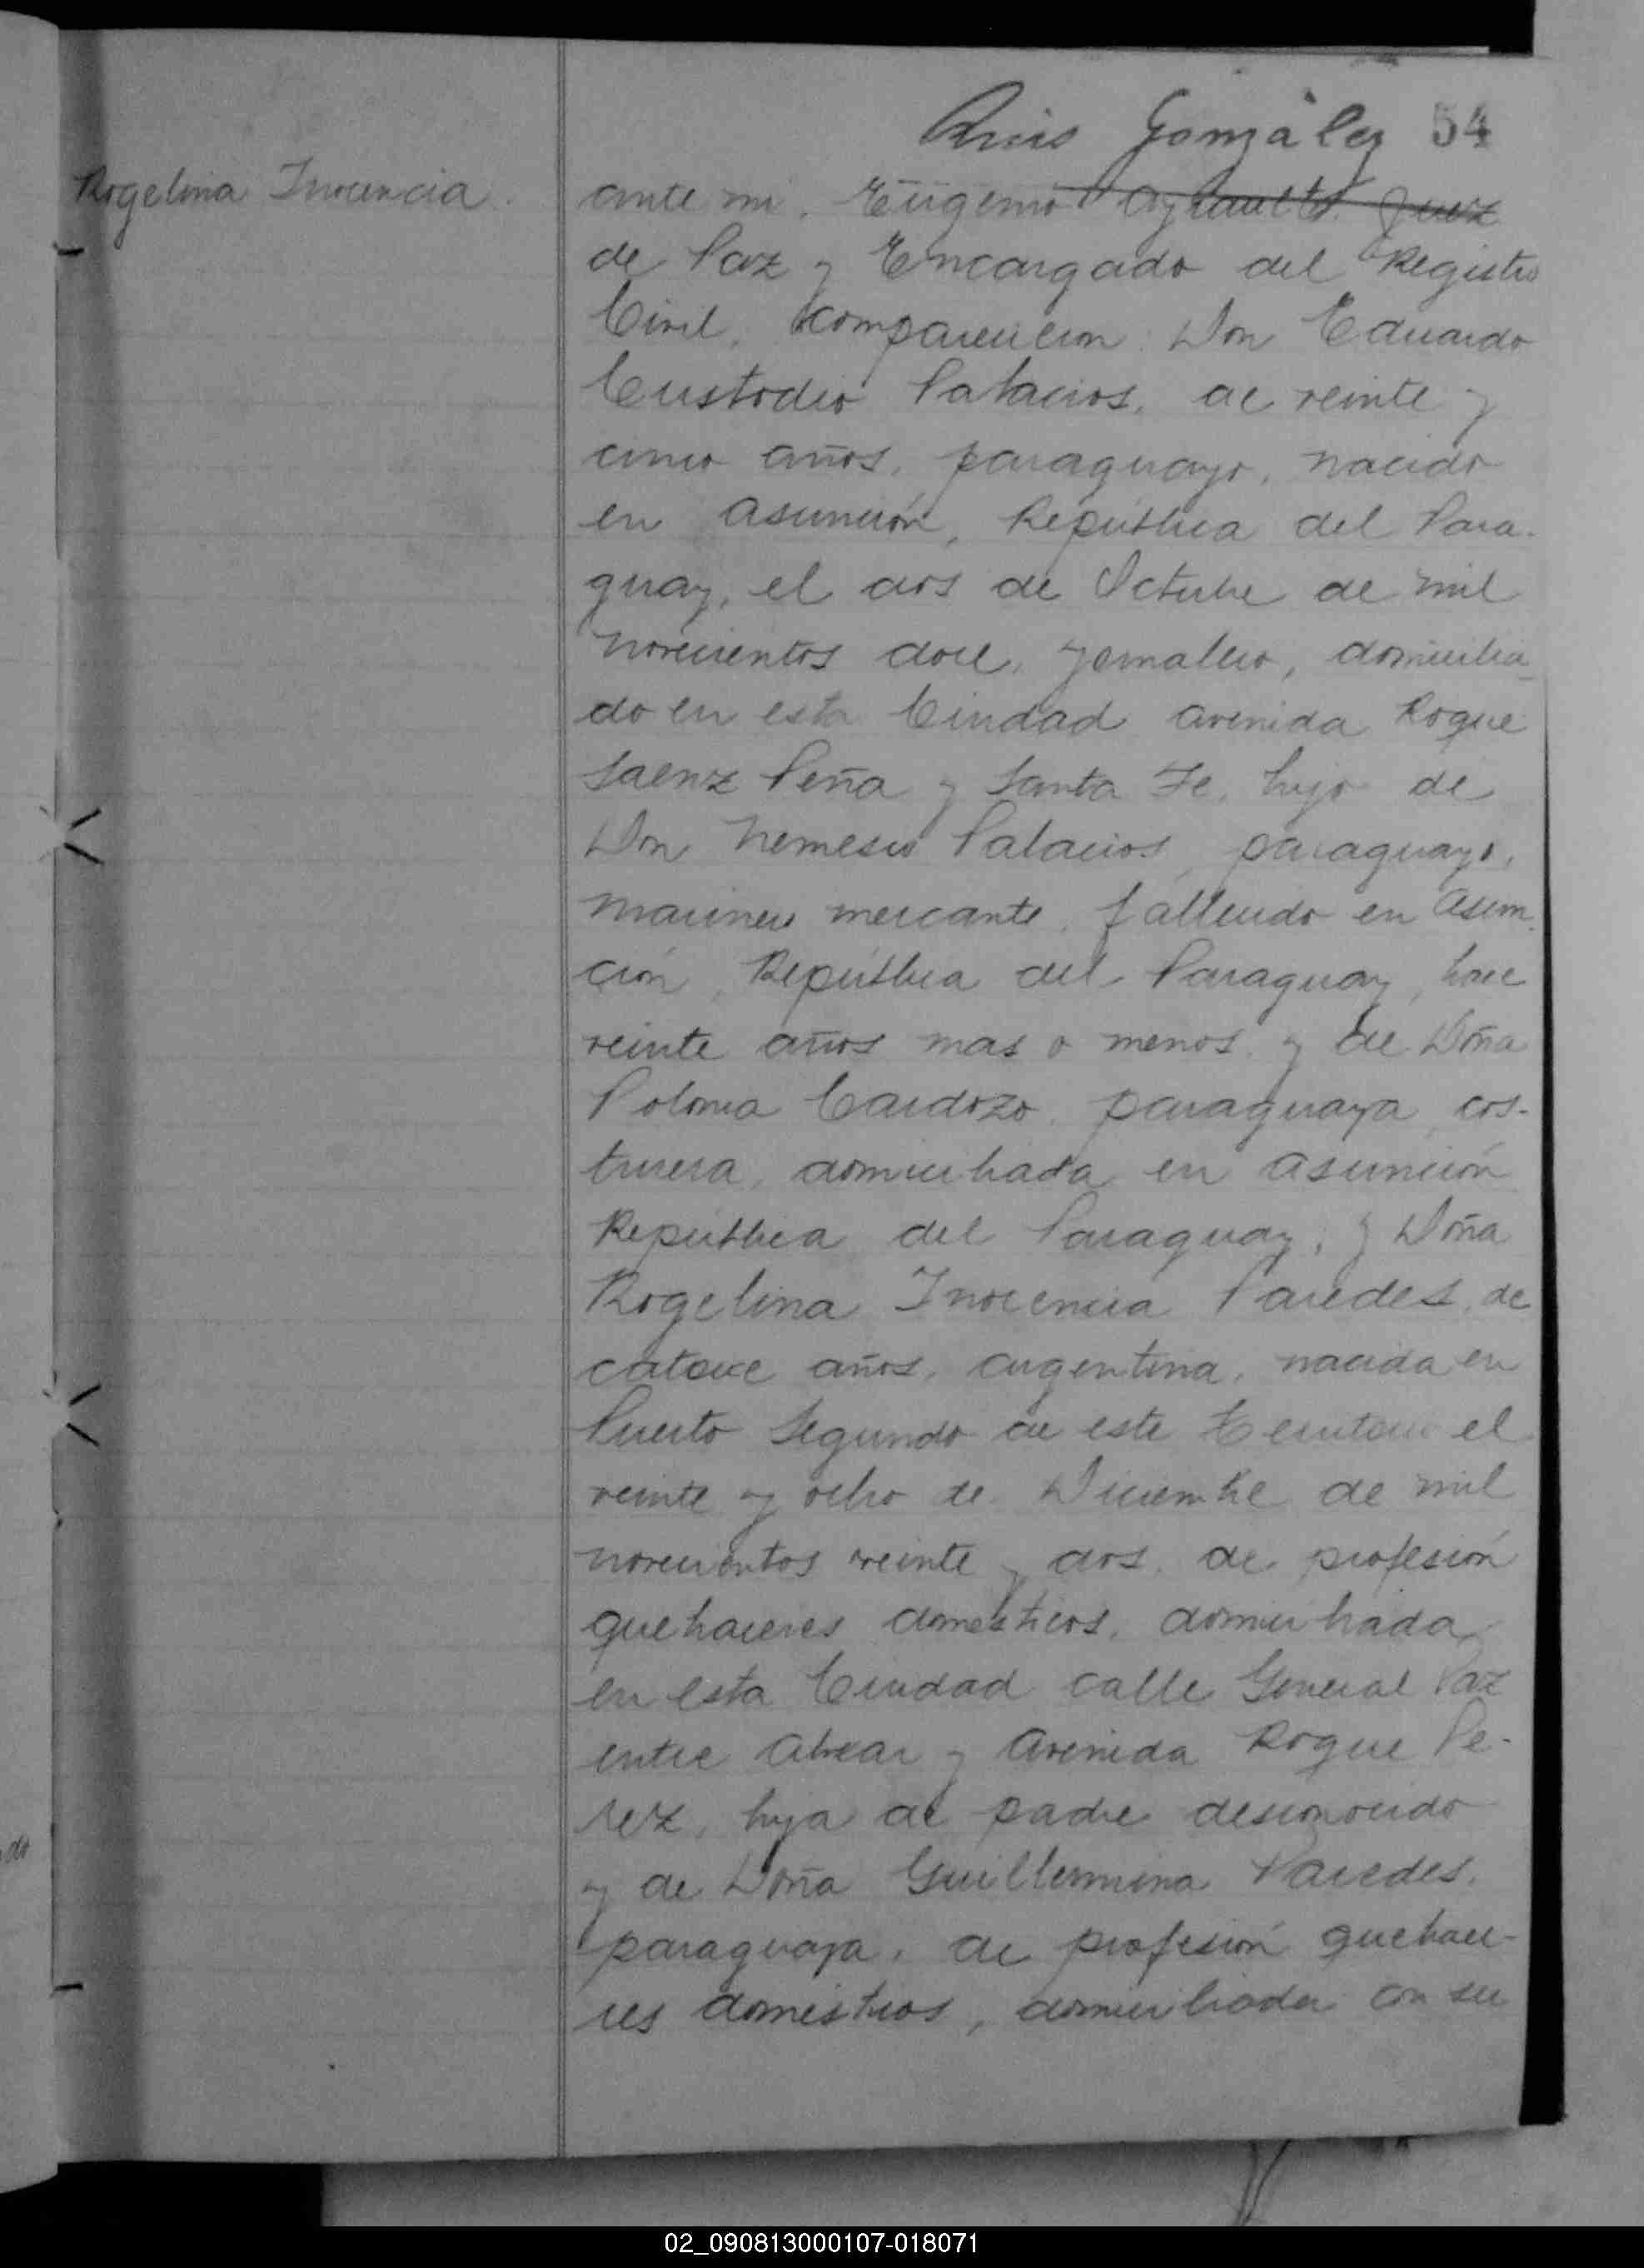 Luis Gonzàlez 54
Rogelina Inocencia.
ante mi, Eugenio Ayrault Juez
de Paz y Encargado del Registro
Civil, comparecieron: Don Eduardo
Custodio Palacios, de veinte y
cinco años, paraguayo, nacido
en Asunción, República del Para-
guay, el dos de Octubre de mil
novecientos doce, jornalero, domicilia-
do en esta Ciudad avenida Roque
Saenz Peña y Santa Fe, hijo de
Don Nemesio Palacios, paraguayo,
marinero mercante, fallecido en Asun-
ción, República del Paraguay, hace
veinte años mas o menos, y de Doña
Polonia Cardozo, paraguaya, cos-
turera, domiciliada en Asunción
República del Paraguay, y Doña
Rogelina Inocencia Paredes, de
catorce años, argentina, nacida en
Puerto Segundo de este Territorio el
veinte y ocho de Diciembre de mil
novecientos veinte y dos, de profesión
quehaceres domésticos, domiciliada
en esta Ciudad calle General Paz
entre Alvear y Avenida Roque Pe-
rez, hija de padre desconocido
y de Doña Guillermina Paredes,
paraguaya, de profesión quehace-
res domésticos, domiciliada con su
do
02_090813000107-018071